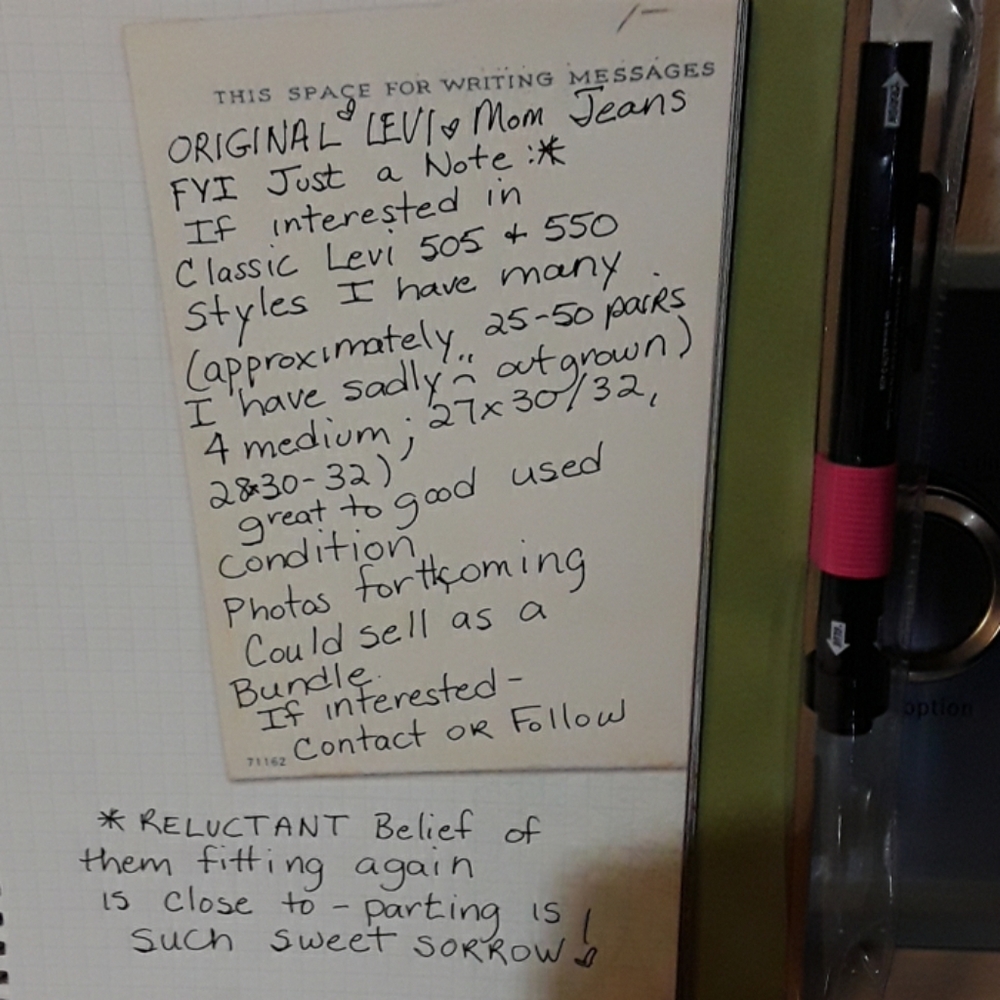 1-
THIS SPACE FOR WRITING MESSAGES
ORIGINAL LEVI Mom Jeans
FYI Just a Note :*
If interested in
Classic Levi 505 + 550
Styles I have many
(approximately 25-50 pairs
I have sadly outgrown)
4 medium; 27x30/32,
28x30-32)
great to good used
Condition
Photos forthcoming
Could sell as a
Bundle.
If interested-
Contact OR Follow
71162
* RELUCTANT Belief of
them fitting again
is close to - parting is
such sweet SORROW!
option